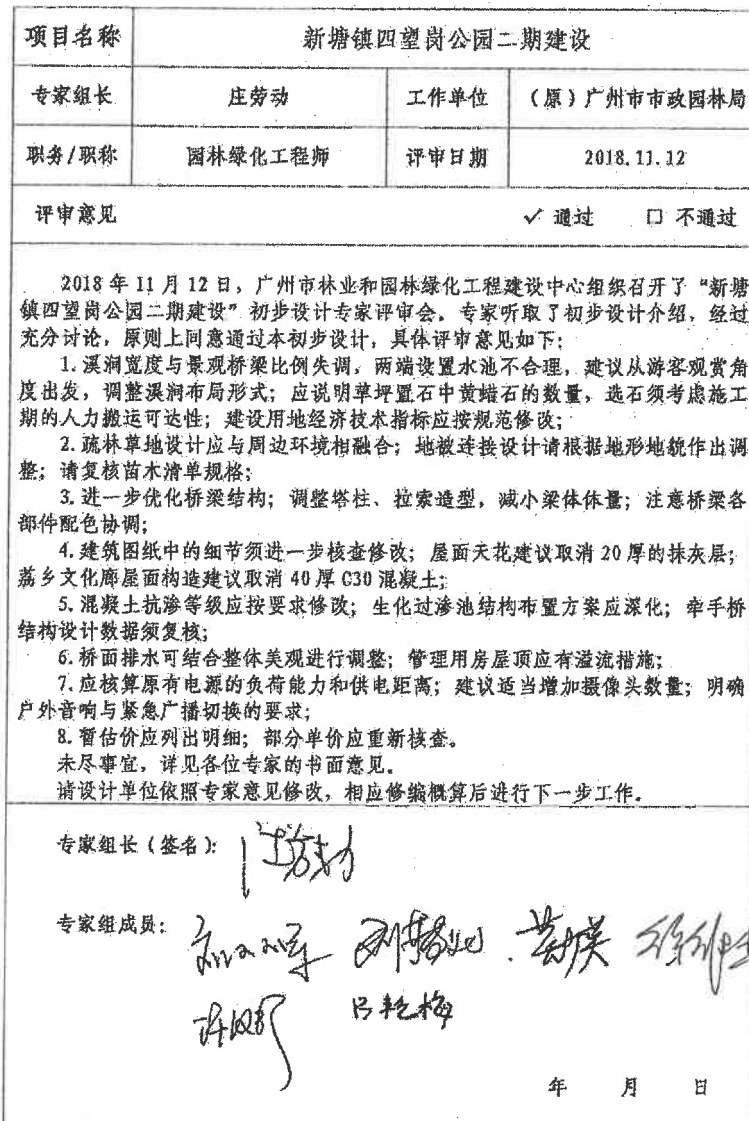 项目名称 新塘镇四望岗公园二期建设
专家组长 庄劳动 工作单位 （原）广州市市政园林局
职务/职称 园林绿化工程师 评审日期 2018.11.12
评审意见 ✓ 通过 □ 不通过
2018年11月12日，广州市林业和园林绿化工程建设中心组织召开了“新塘
镇四望岗公园二期建设”初步设计专家评审会。专家听取了初步设计介绍，经过
充分讨论，原则上同意通过本初步设计，具体评审意见如下：
1.溪涧宽度与景观桥梁比例失调，两端设置水池不合理，建议从游客观赏角
度出发，调整溪涧布局形式；应说明草坪置石中黄蜡石的数量，选石须考虑施工
期的人力搬运可达性；建设用地经济技术指标应按规范修改；
2.疏林草地设计应与周边环境相融合；地被连接设计请根据地形地貌作出调
整；请复核苗木清单规格；
3.进一步优化桥梁结构；调整塔柱、拉索造型，减小梁体体量；注意桥梁各
部件配色协调；
4.建筑图纸中的细节须进一步核查修改；屋面天花建议取消20厚的抹灰层；
荔乡文化廊屋面构造建议取消40厚C30混凝土；
5.混凝土抗渗等级应按要求修改；生化过渗池结构布置方案应深化；牵手桥
结构设计数据须复核；
6.桥面排水可结合整体美观进行调整；管理用房屋顶应有溢流措施；
7.应核算原有电源的负荷能力和供电距离；建议适当增加摄像头数量；明确
户外音响与紧急广播切换的要求；
8.暂估价应列出明细；部分单价应重新核查。
未尽事宜，详见各位专家的书面意见。
请设计单位依照专家意见修改，相应修编概算后进行下一步工作。
专家组长（签名）： 庄劳动
专家组成员：
吕艳梅
年 月 日